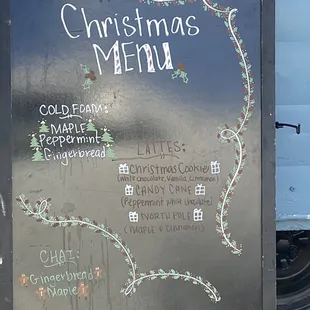 Christmas
MENU
COLD FOAM:
MAPLE
Peppermint
Gingerbread
LATTES:
Christmas Cookie
(White chocolate, Vanilla, Cinnamon)
CANDY CANE
(Peppermint White chocolate)
NORTH POLE
(Maple & Cinnamon)
CHAI:
Gingerbread
Maple